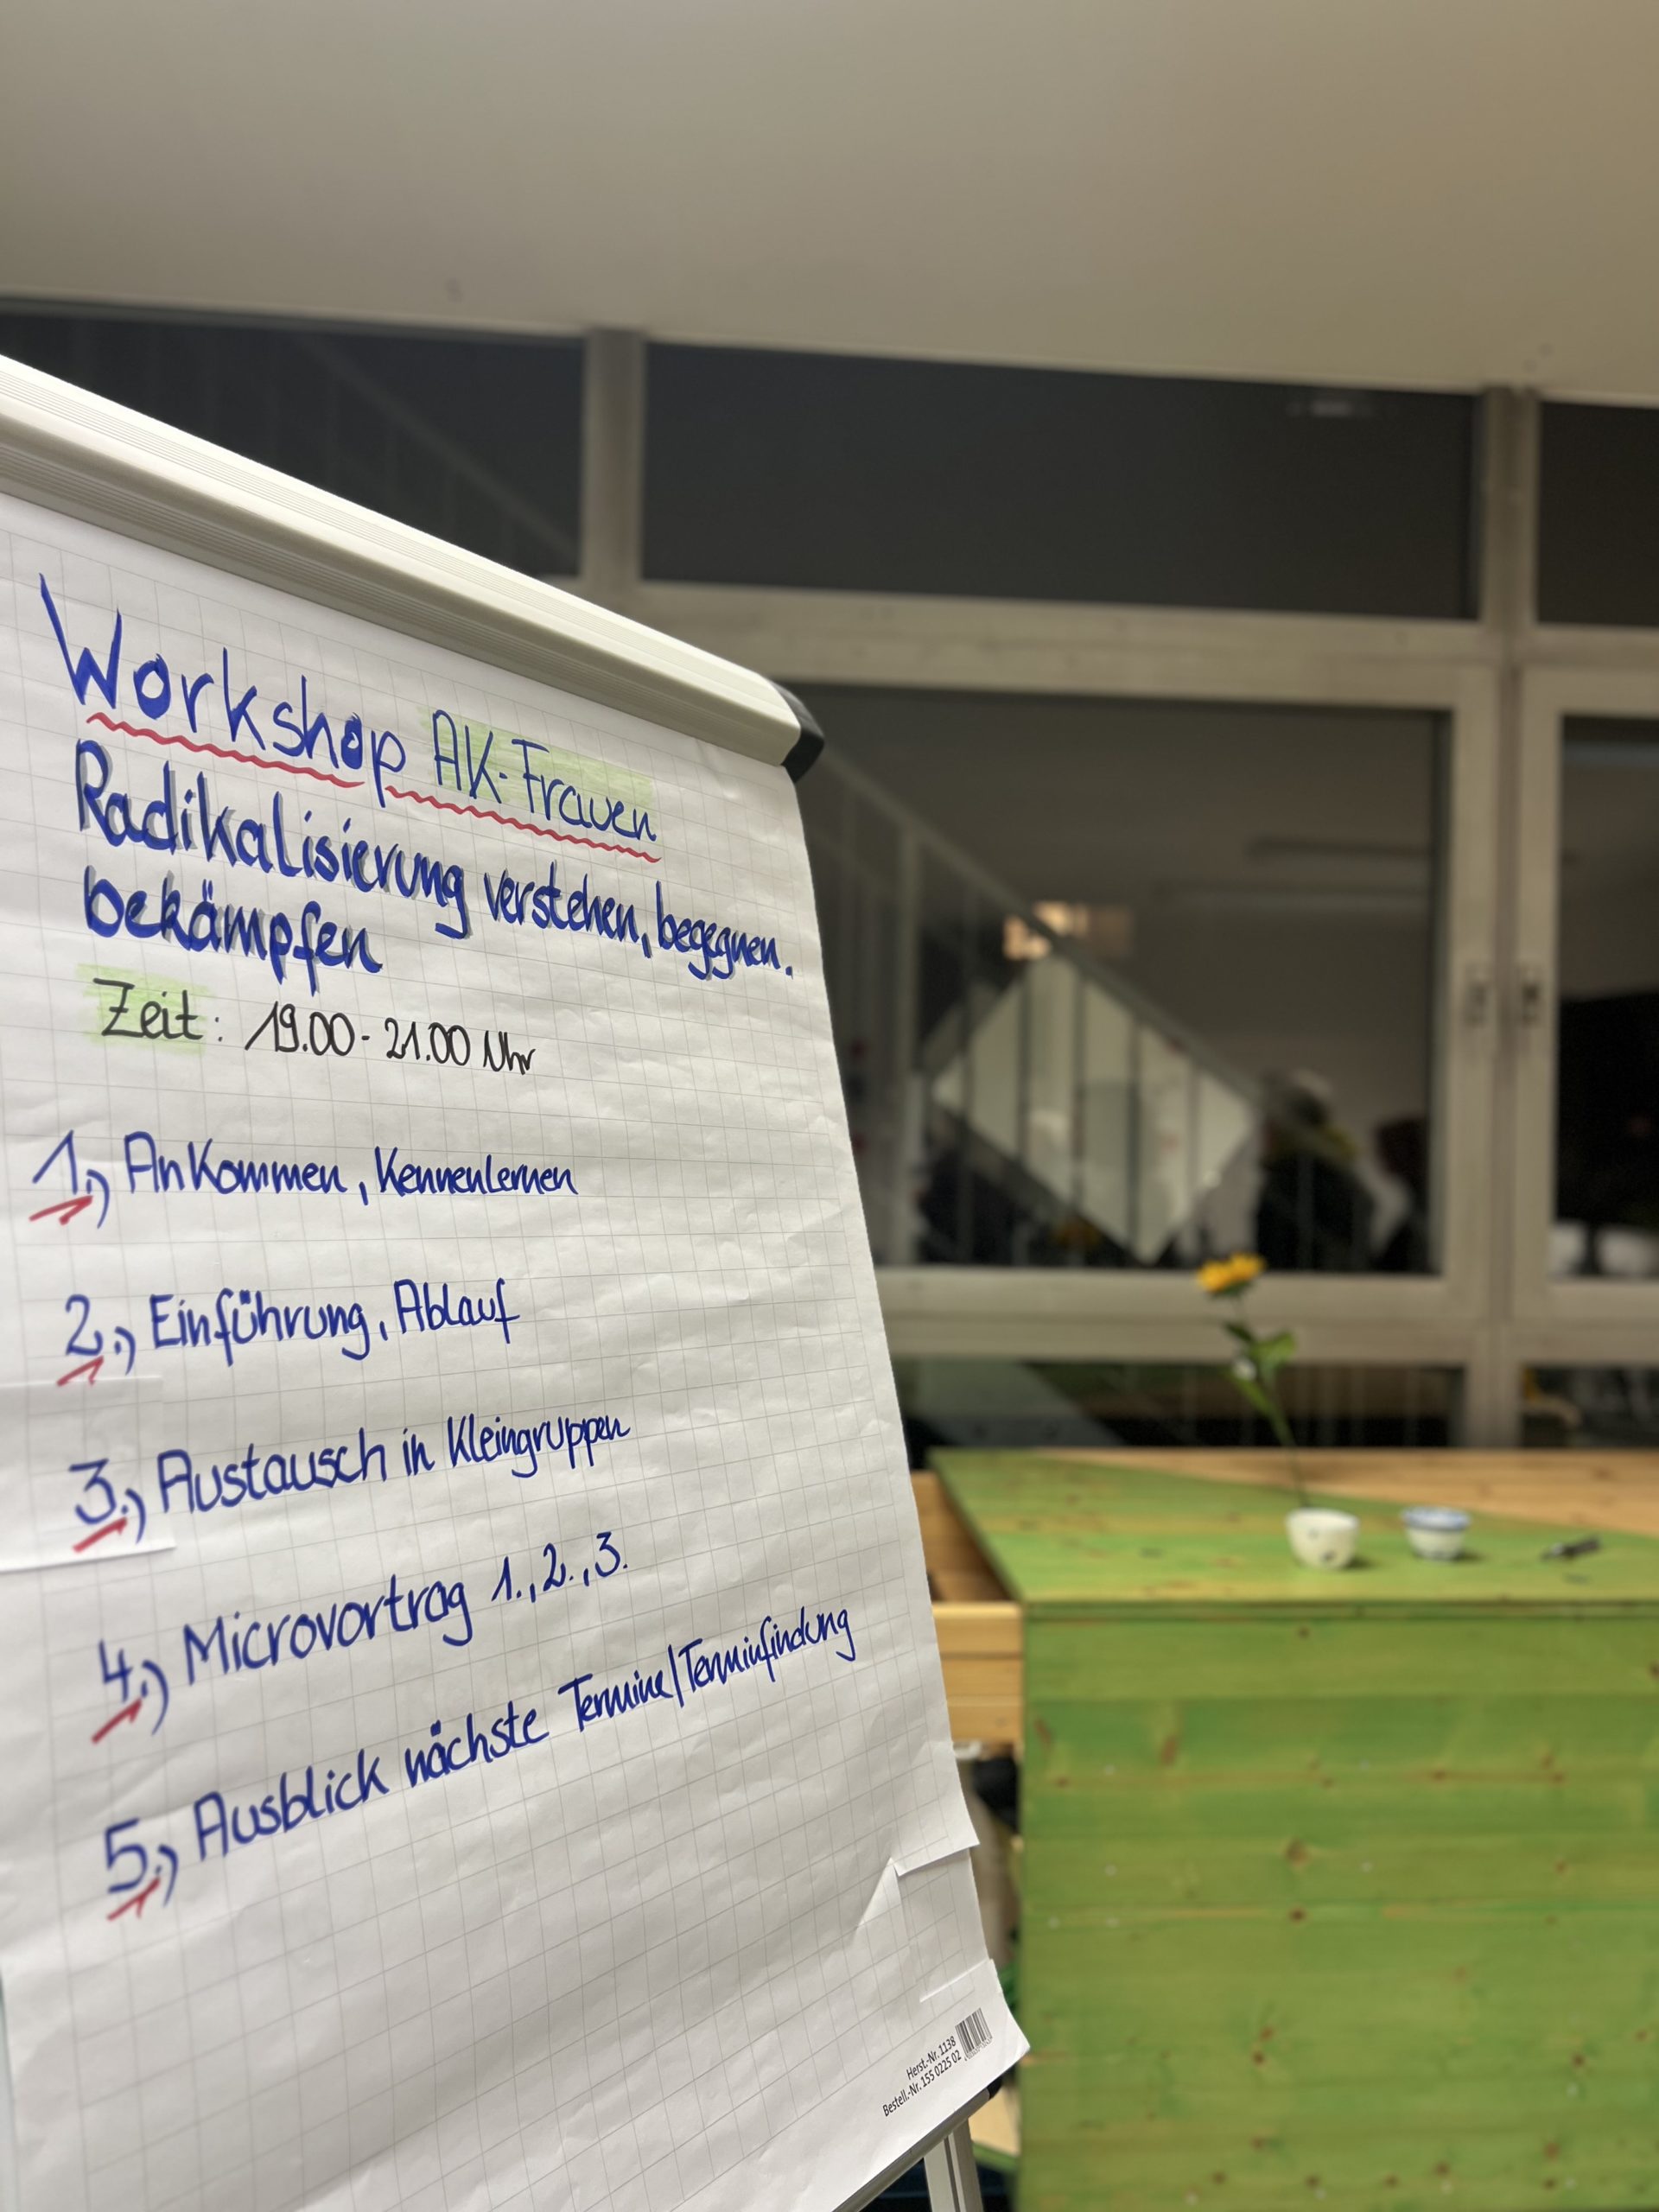 Workshop AK-Frauen
Radikalisierung verstehen, begegnen.
bekämpfen
Zeit: 19.00 - 21.00 Uhr
1.) Ankommen, Kennenlernen
2.) Einführung, Ablauf
3.) Austausch in Kleingruppen
4.) Microvortrag 1., 2., 3.
5.) Ausblick nächste Termine/Terminfindung
Herst.-Nr. 1138
Bestell.-Nr. 155 0225 02